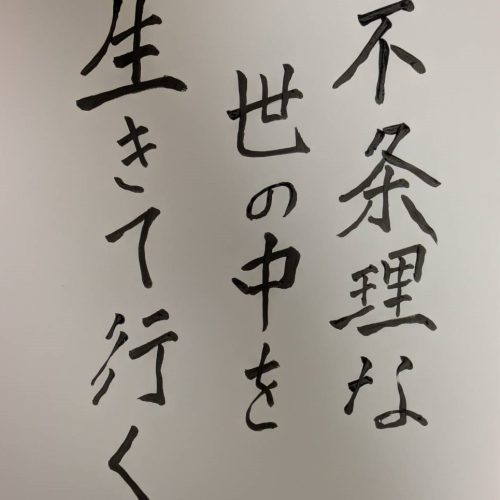 不条理な
世の中を
生きて行く